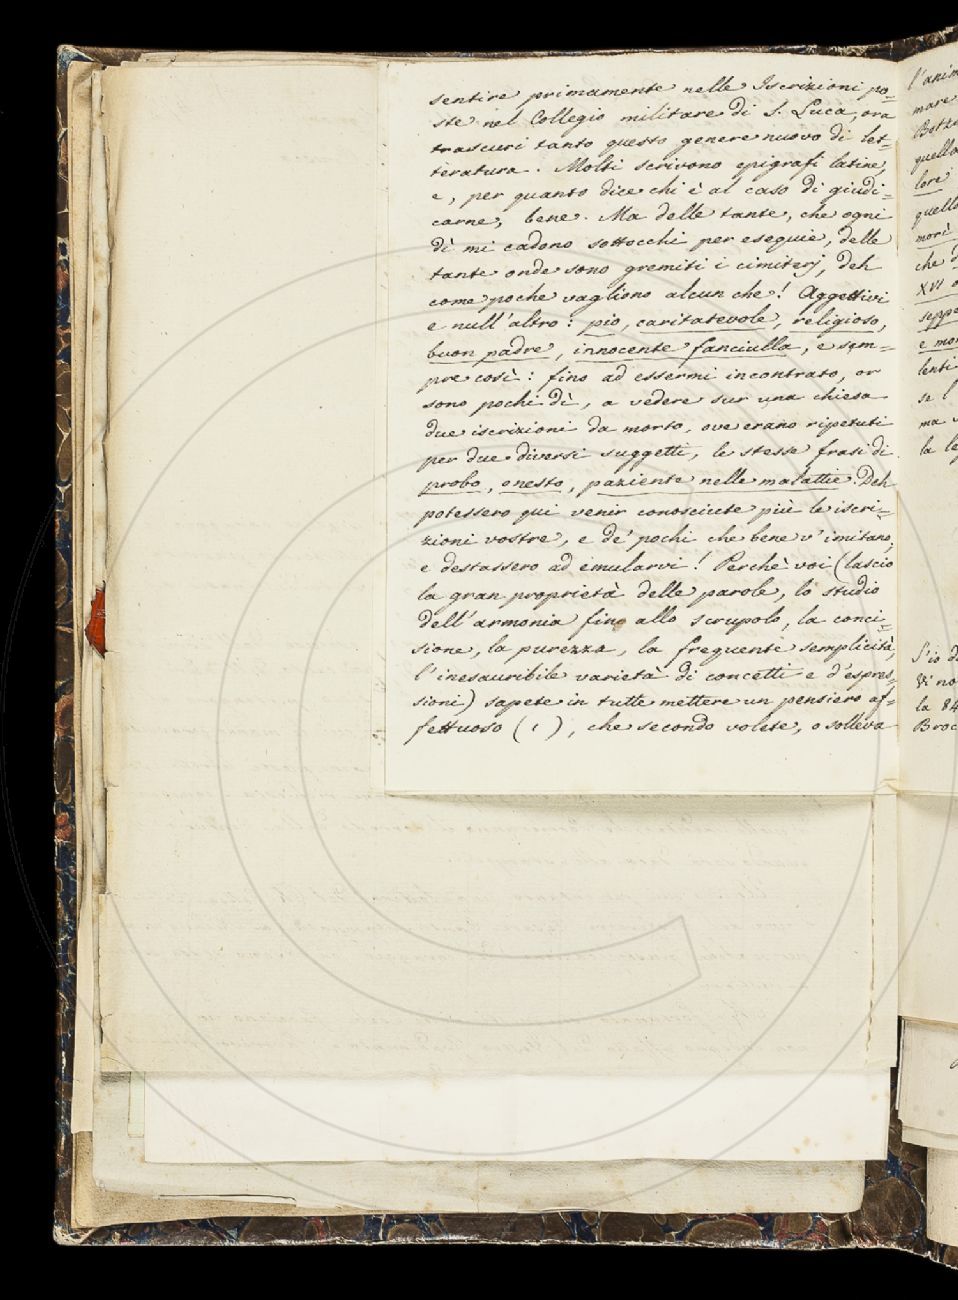 sentire primamente nelle Iscrizioni po=
ste nel Collegio militare di S. Luca, ora
trascuri tanto questo genere nuovo di let=
teratura. Molti scrivono epigrafi latine,
e, per quanto dice chi è al caso di giudi=
carne, bene. Ma delle tante, che ogni
dì mi cadono sottocchi per esequie, delle
tante onde sono gremiti i cimiterj, deh
come poche vagliono alcun che! Aggettivi
e null'altro: pio, caritatevole, religioso,
buon padre, innocente fanciulla, e sem=
pre così: fino ad essermi incontrato, or
sono pochi dì, a vedere sur una chiesa
due iscrizioni da morto, ove erano ripetuti
per due diversi suggetti, le stesse frasi di
probo, onesto, paziente nelle malattie. Deh
potessero qui venir conosciute più le iscri=
zioni vostre, e de' pochi che bene v'imitano,
e destassero ad emularvi! Perchè voi (lascio
la gran proprietà delle parole, lo studio
dell'armonia fino allo scrupolo, la conci=
sione, la purezza, la frequente semplicità,
l'inesauribile varietà di concetti e d'espres=
sioni) sapete in tutte mettere un pensiero af=
fettuoso (1), che secondo volete, o solleva
l'anim
mare
quella
lore
quello
morì
che d
XVI
seppe
e mor
lenti
se l
ma
la le
S'io d
Vi no
la 84
Broc